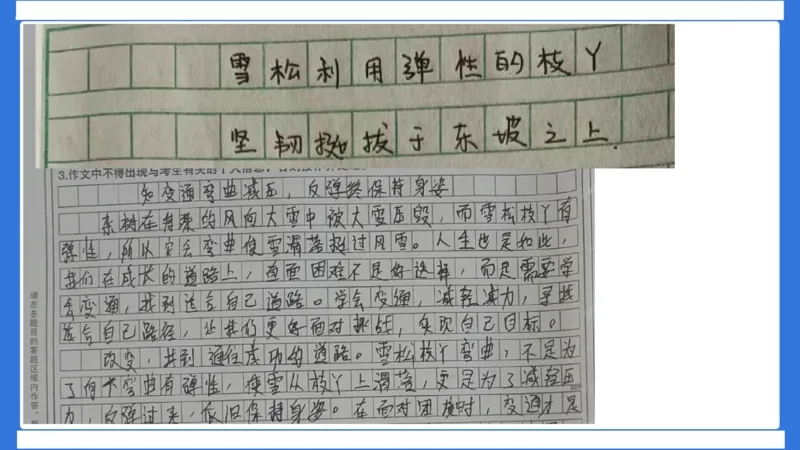 雪松利用弹性的枝丫
坚韧挺拔于东坡之上.
3.作文中不得出现与考生有关的个人信息,
知变通弯曲减压,反弹终保持身姿
杂树在背景的风向大雪中被大雪压毁,而雪松枝丫有
弹性,所以它会弯曲使雪滑落挺过风雪。人生也是如此,
我们在成长的道路上,直面困难不是好选择,而是需要学
会变通,找到适合自己道路。学会变通,减轻减力,寻找
适合自己路径,让我们更好面对挑战,实现自己目标。
改变,找到通往成功的道路。雪松枝丫弯曲,不是为
了向大弯曲有弹性,使雪从枝丫上滑落,更是为了减轻压
力,反弹过来,依旧保持身姿。在面对困难时,变通才是
请在各题目的答题区域内作答,